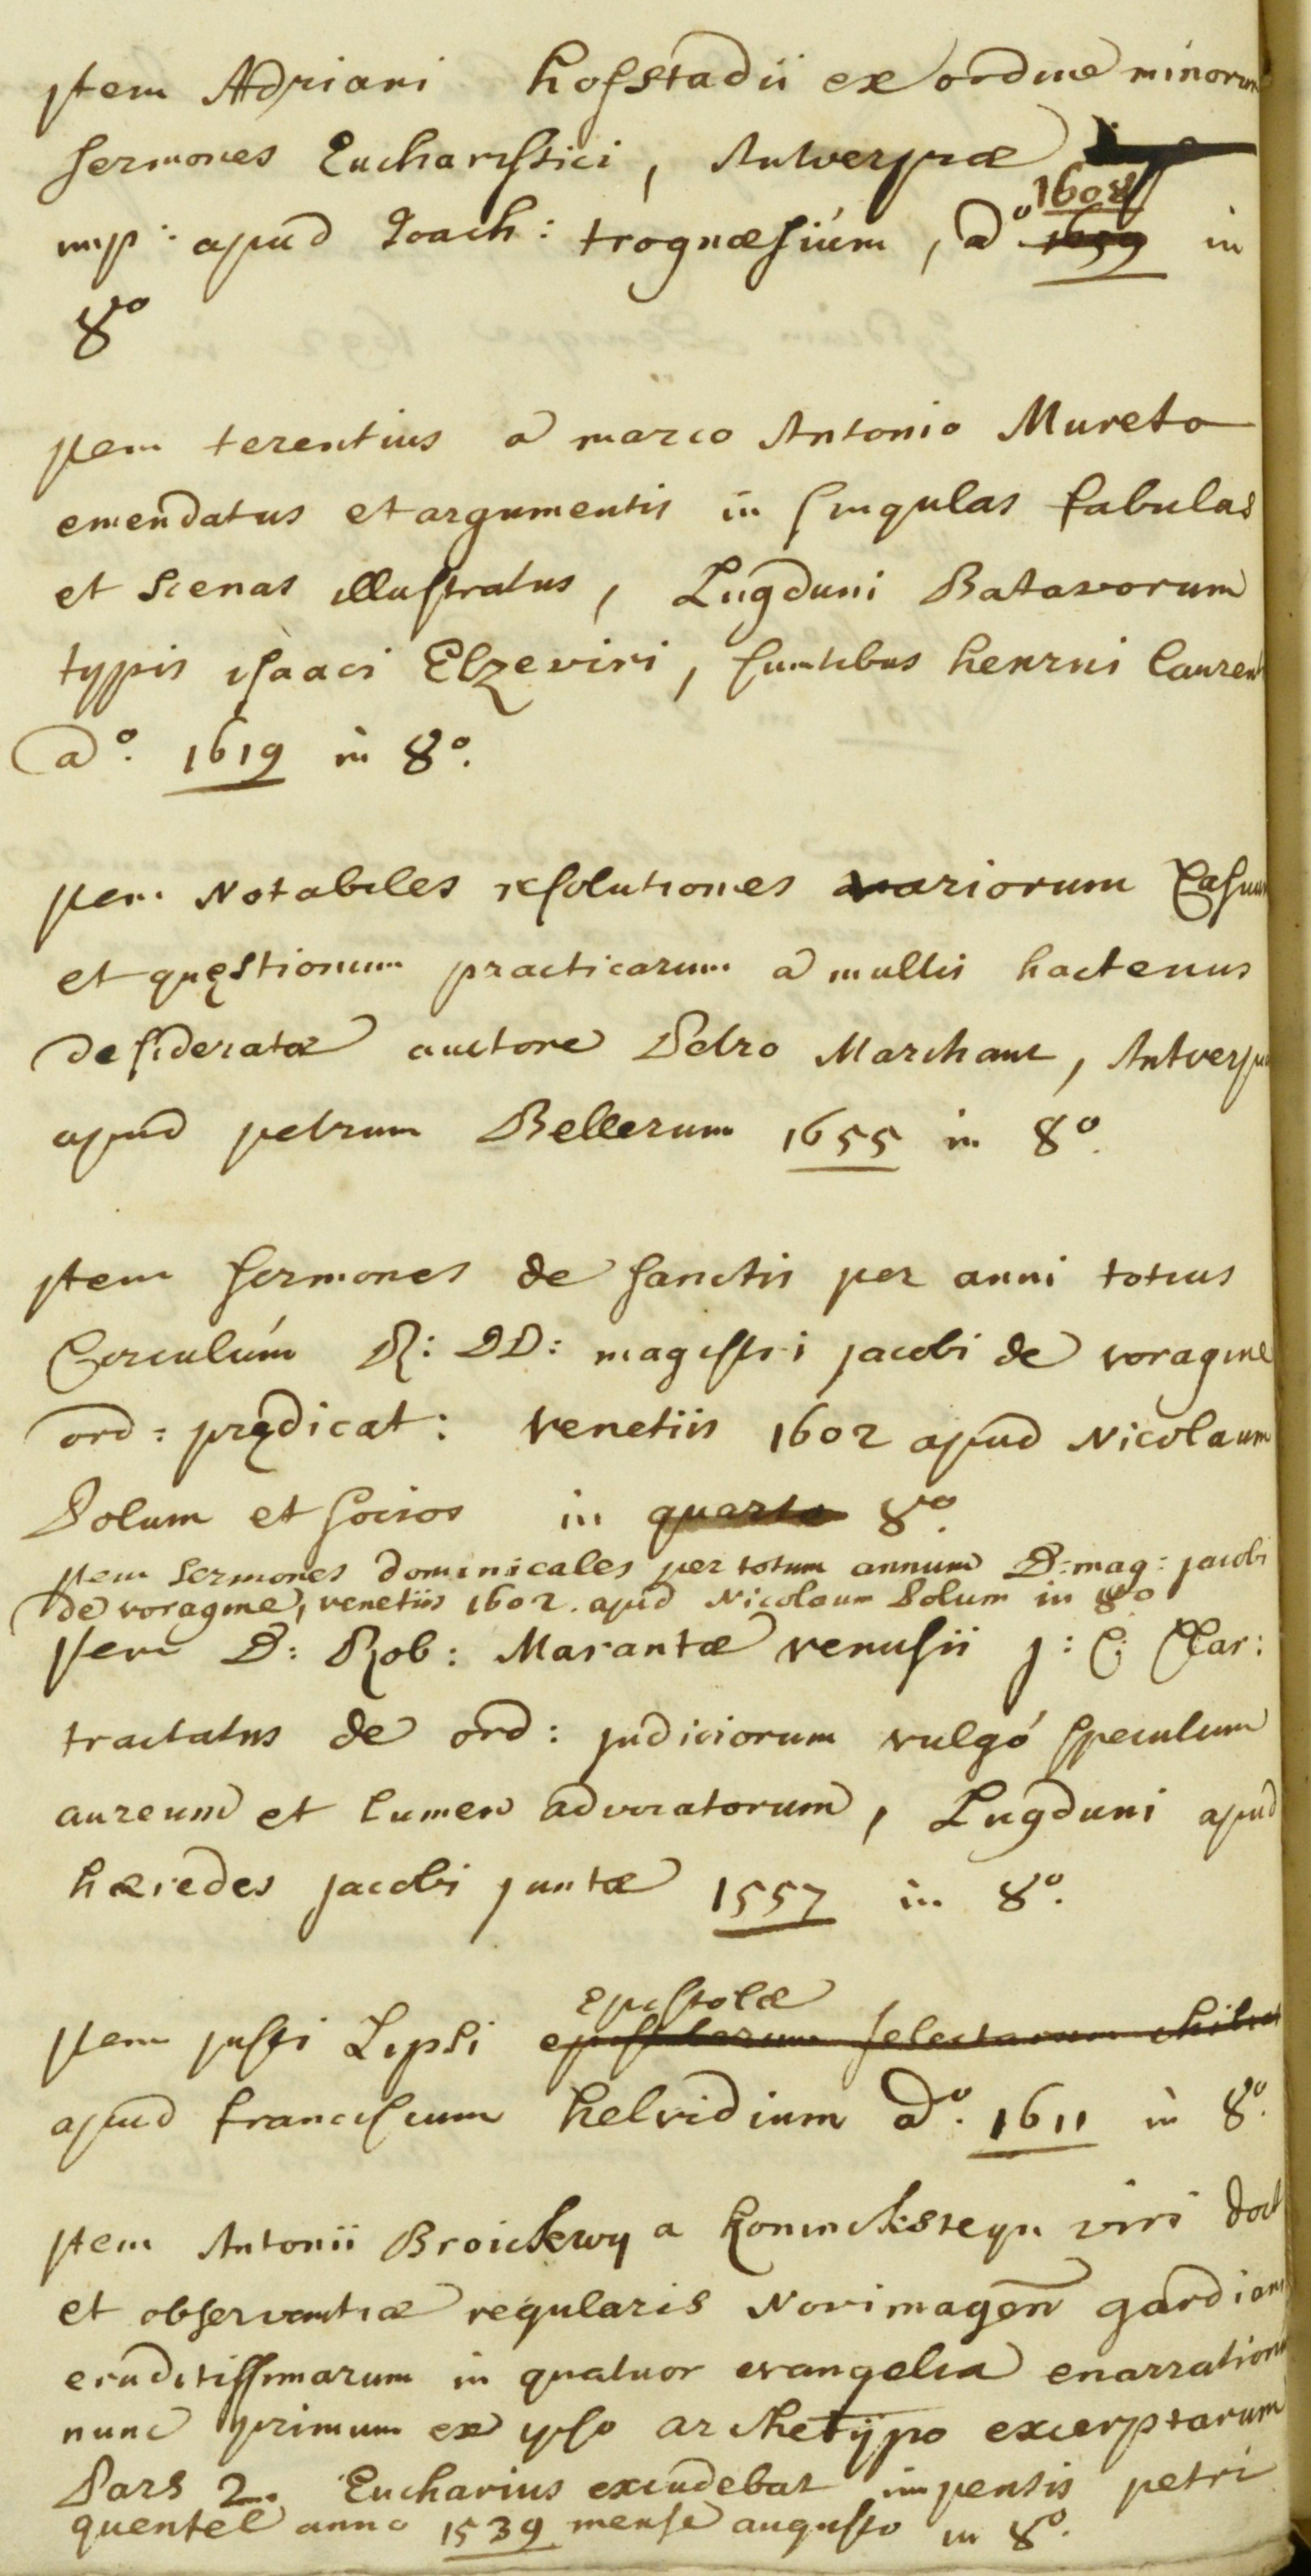 jtem Adriani hofstadii ex ordine minorum
sermones Eucharistici, Antverpiæ
imp: apud Joach: trognæsiúm, a° 1608 in
8°
jtem terentius a marco Antonio Mureto
emendatus et argumentis in singulas fabulas
et scenas illustratus, Lugduni Batavorum
typis isaaci Elzeviri, sumtibus henrici laurent
a°. 1619 in 8°.
jtem Notabiles resolutiones variorum Casuum
et quęstionum practicarum a multis hactenus
desideratæ auctore Petro Marchant, Antverpiæ
apud petrum Bellerum 1655 in 8°.
jtem sermones de sanctis per anni totius
Circulúm R: DD: magistri jacobi de voragine
ord: prędicat: venetiis 1602 apud Nicolaum
Polum et socios in quarto 8°.
jtem sermones dominicales per totum annum D: mag: jacobi
de voragine, venetiis 1602. apud Nicolaum Polum in 8°
jtem D: Rob: Marantæ venusii j: C: Clar:
tractatus de ord: judiciorum vulgó speculum
aureum et lumen advocatorum, Lugduni apud
hæredes jacobi juntæ 1557 in 8°.
jtem justi Lipsi epistolæ epistolarum selectarum chilias
apud franciscum helvidium a°. 1611 in 8°.
jtem Antonii Broickwy a Koninksteyn viri doct
et observantiæ regularis Novimagen gardiani
eruditissimarum in quatuor evangelia enarrationum
nunc primum ex ipso archetÿpo excerptarum
Pars 2. Eucharius excudebat impensis petri
quentel anno 1539 mense augusto in 8°.